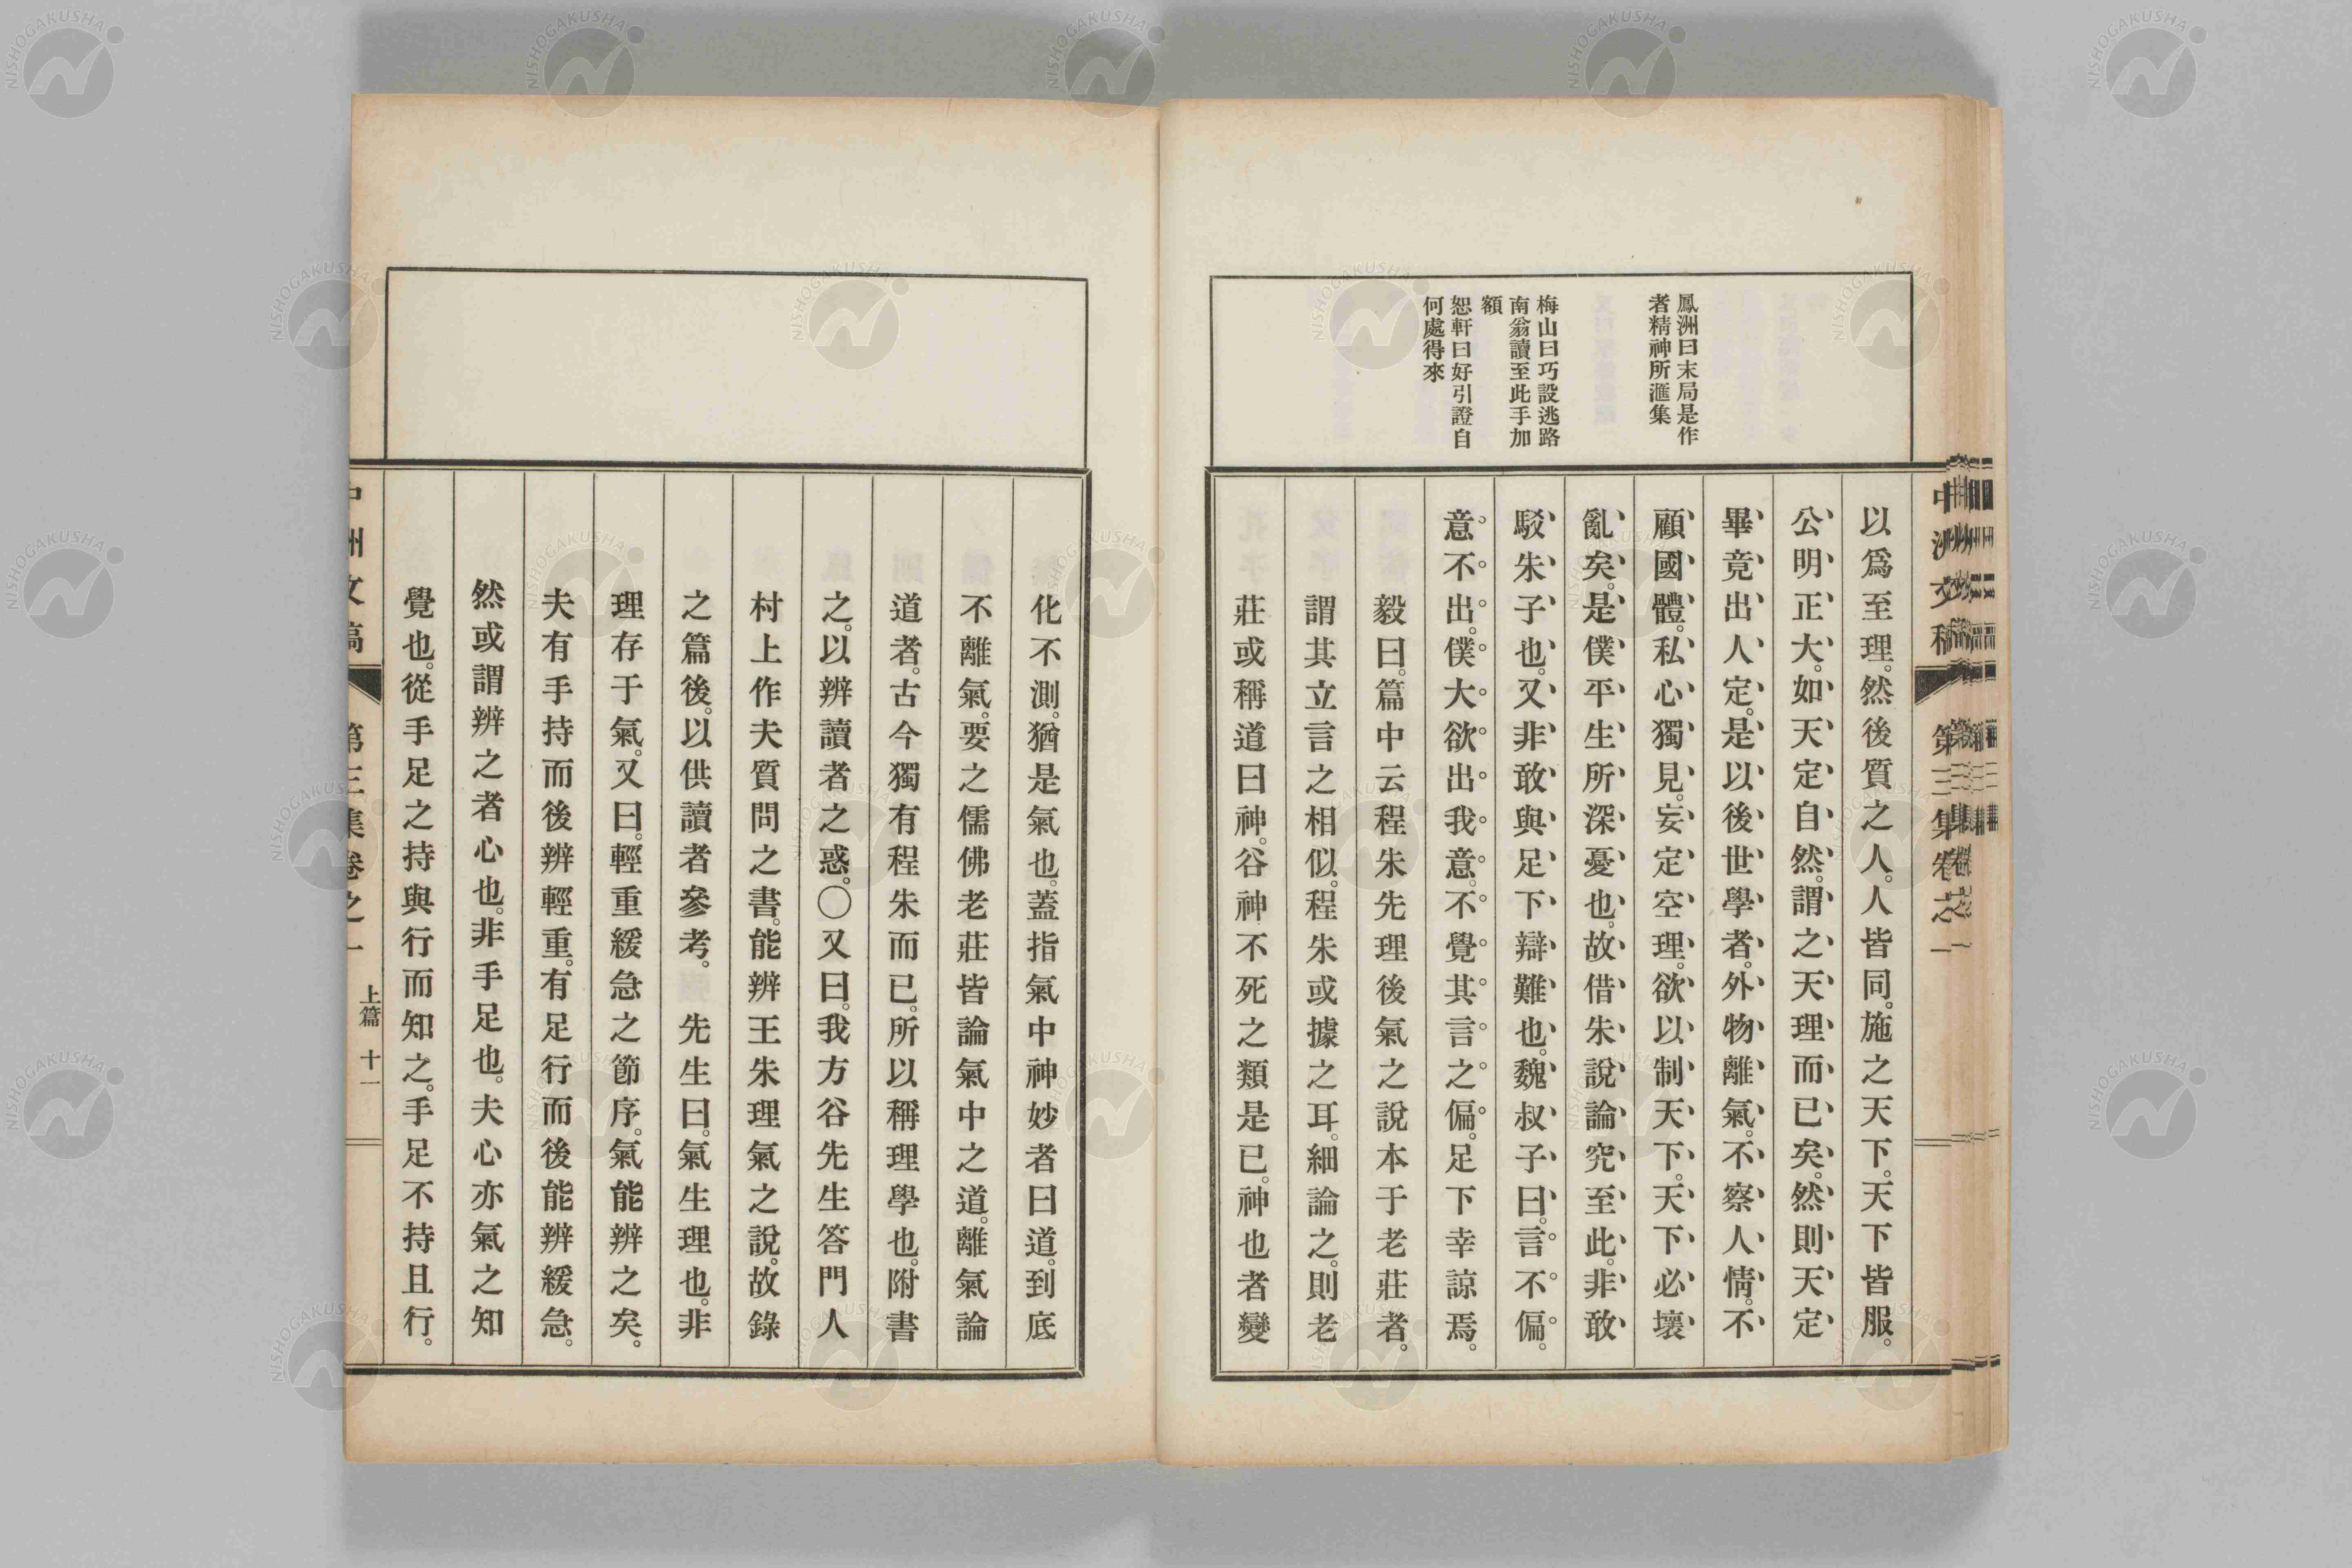 中洲文稿 第三集卷之一
鳳洲曰末局是作
者精神所滙集
梅山曰巧設逃路
南翁讀至此手加
額
恕軒曰好引證自
何處得來
以爲至理。然後質之人。人皆同。施之天下。天下皆服。
公明正大。如天定自然。謂之天理而已矣。然則天定
畢竟出人定。是以後世學者。外物離氣。不察人情。不
顧國體。私心獨見。妄定空理。欲以制天下。天下必壞
亂矣。是僕平生所深憂也。故借朱說論究至此。非敢
駁朱子也。又非敢與足下辯難也。魏叔子曰。言不偏。
意不出。僕大欲出我意。不覺其言之偏。足下幸諒焉。
毅曰。篇中云程朱先理後氣之說本于老莊者。
謂其立言之相似。程朱或據之耳。細論之。則老
莊或稱道曰神。谷神不死之類是已。神也者變
化不測。猶是氣也。蓋指氣中神妙者曰道。到底
不離氣。要之儒佛老莊皆論氣中之道。離氣論
道者。古今獨有程朱而已。所以稱理學也。附書
之。以辨讀者之惑。〇又曰。我方谷先生答門人
村上作夫質問之書。能辨王朱理氣之說。故錄
之篇後。以供讀者參考。 先生曰。氣生理也。非
理存于氣。又曰。輕重緩急之節序。氣能辨之矣。
夫有手持而後辨輕重。有足行而後能辨緩急。
然或謂辨之者心也。非手足也。夫心亦氣之知
覺也。從手足之持與行而知之。手足不持且行。
中洲文稿 第三集卷之一 上篇 十一
NISHOGAKUSHA